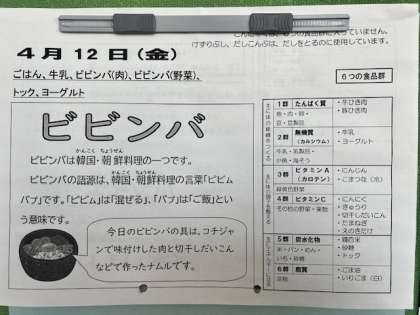 こんだては、6つの食品群に入っていません。
けずりぶし、だしこんぶは、だしをとるのに使用しています。
4月12日(金)
ごはん、牛乳、ビビンバ(肉)、ビビンバ(野菜)、
トック、ヨーグルト
ビビンバ
ビビンバは韓国・朝鮮料理の一つです。
かんこく ちょうせん
ビビンバの語源は、韓国・朝鮮料理の言葉「ビビム
かんこく ちょうせん
パプ」です。「ビビム」は「混ぜる」、「パプ」は「ご飯」とい
う意味です。
今日のビビンバの具は、コチジャ
ンで味付けした肉と切干しだいこん
などで作ったナムルです。
6つの食品群
1群 たんぱく質
魚・肉・卵・
豆・豆製品
・牛ひき肉
・豚ひき肉
2群 無機質
(カルシウム)
牛乳・乳製品・
小魚・海そう
・牛乳
・ヨーグルト
3群 ビタミンA
(カロテン)
緑黄色野菜
・にんじん
・こまつな(冷)
4群 ビタミンC
その他の野菜・果物
・にんにく
・きゅうり
・切干しだいこん
・たまねぎ
・えのきだけ
5群 炭水化物
米・パン・めん・
いも・砂糖
・精白米
・砂糖
・トック
6群 脂質
・ごま油
・いりごま(白)